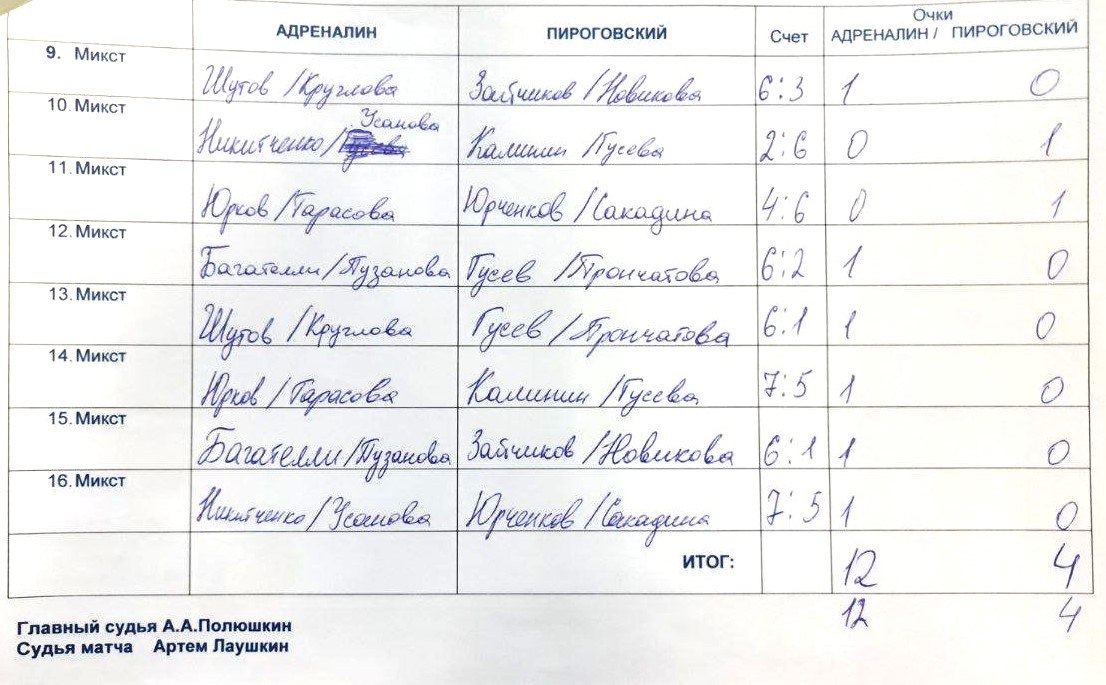 Очки
АДРЕНАЛИН ПИРОГОВСКИЙ Счет АДРЕНАЛИН / ПИРОГОВСКИЙ
9. Микст
Шутов /Круглова Зайчиков /Новикова 6:3 1 0
10. Микст
Усанова
Никитченко/ Калинин /Гусева 2:6 0 1
11. Микст
Юрков /Тарасова Юрченков /Сакадина 4:6 0 1
12. Микст
Багателли/Пузанова Гусев /Прончатова 6:2 1 0
13. Микст
Шутов /Круглова Гусев /Прончатова 6:1 1 0
14. Микст
Юрков /Тарасова Калинин /Гусева 7:5 1 0
15. Микст
Багателли/Пузанова Зайчиков /Новикова 6:1 1 0
16. Микст
Никитченко/Усанова Юрченков /Сакадина 7:5 1 0
ИТОГ: 12 4
12 4
Главный судья А.А.Полюшкин
Судья матча Артем Лаушкин